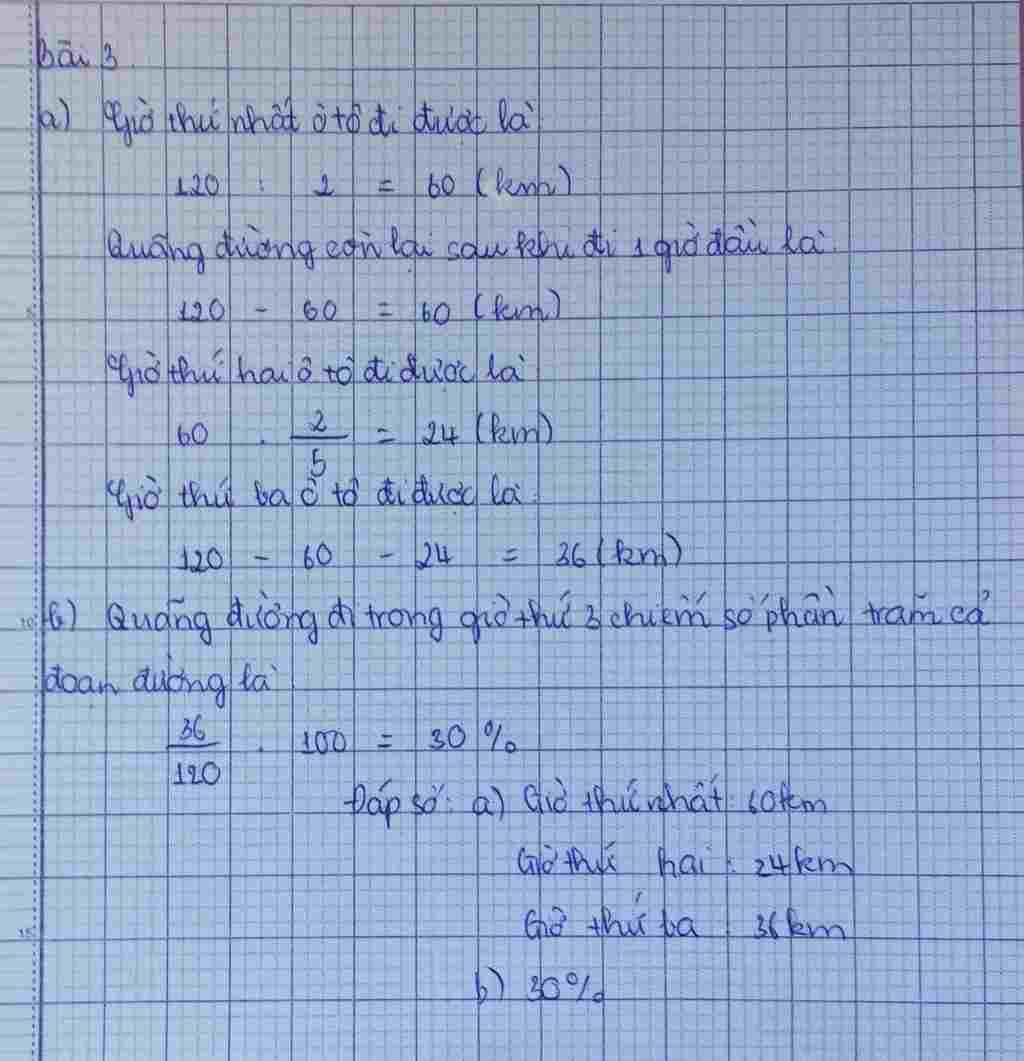 Bài 3
a) Giờ thứ nhất ô tô đi được là
120 : 2 = 60 (km)
Quãng đường còn lại sau khi đi 1 giờ đầu là
120 - 60 = 60 (km)
Giờ thứ hai ô tô đi được là
60 . 2/5 = 24 (km)
Giờ thứ ba ô tô đi được là
120 - 60 - 24 = 36 (km)
b) Quãng đường đi trong giờ thứ 3 chiếm số phần trăm cả
đoạn đường là
36/120 . 100 = 30 %
Đáp số: a) Giờ thứ nhất: 60km
Giờ thứ hai : 24km
Giờ thứ ba : 36km
b) 30%